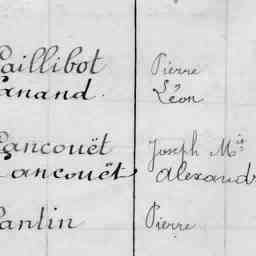 Paillibot Pierre
Panand. Léon
Pancouët Joseph Mie
Pancouët Alexand
Pantin Pierre